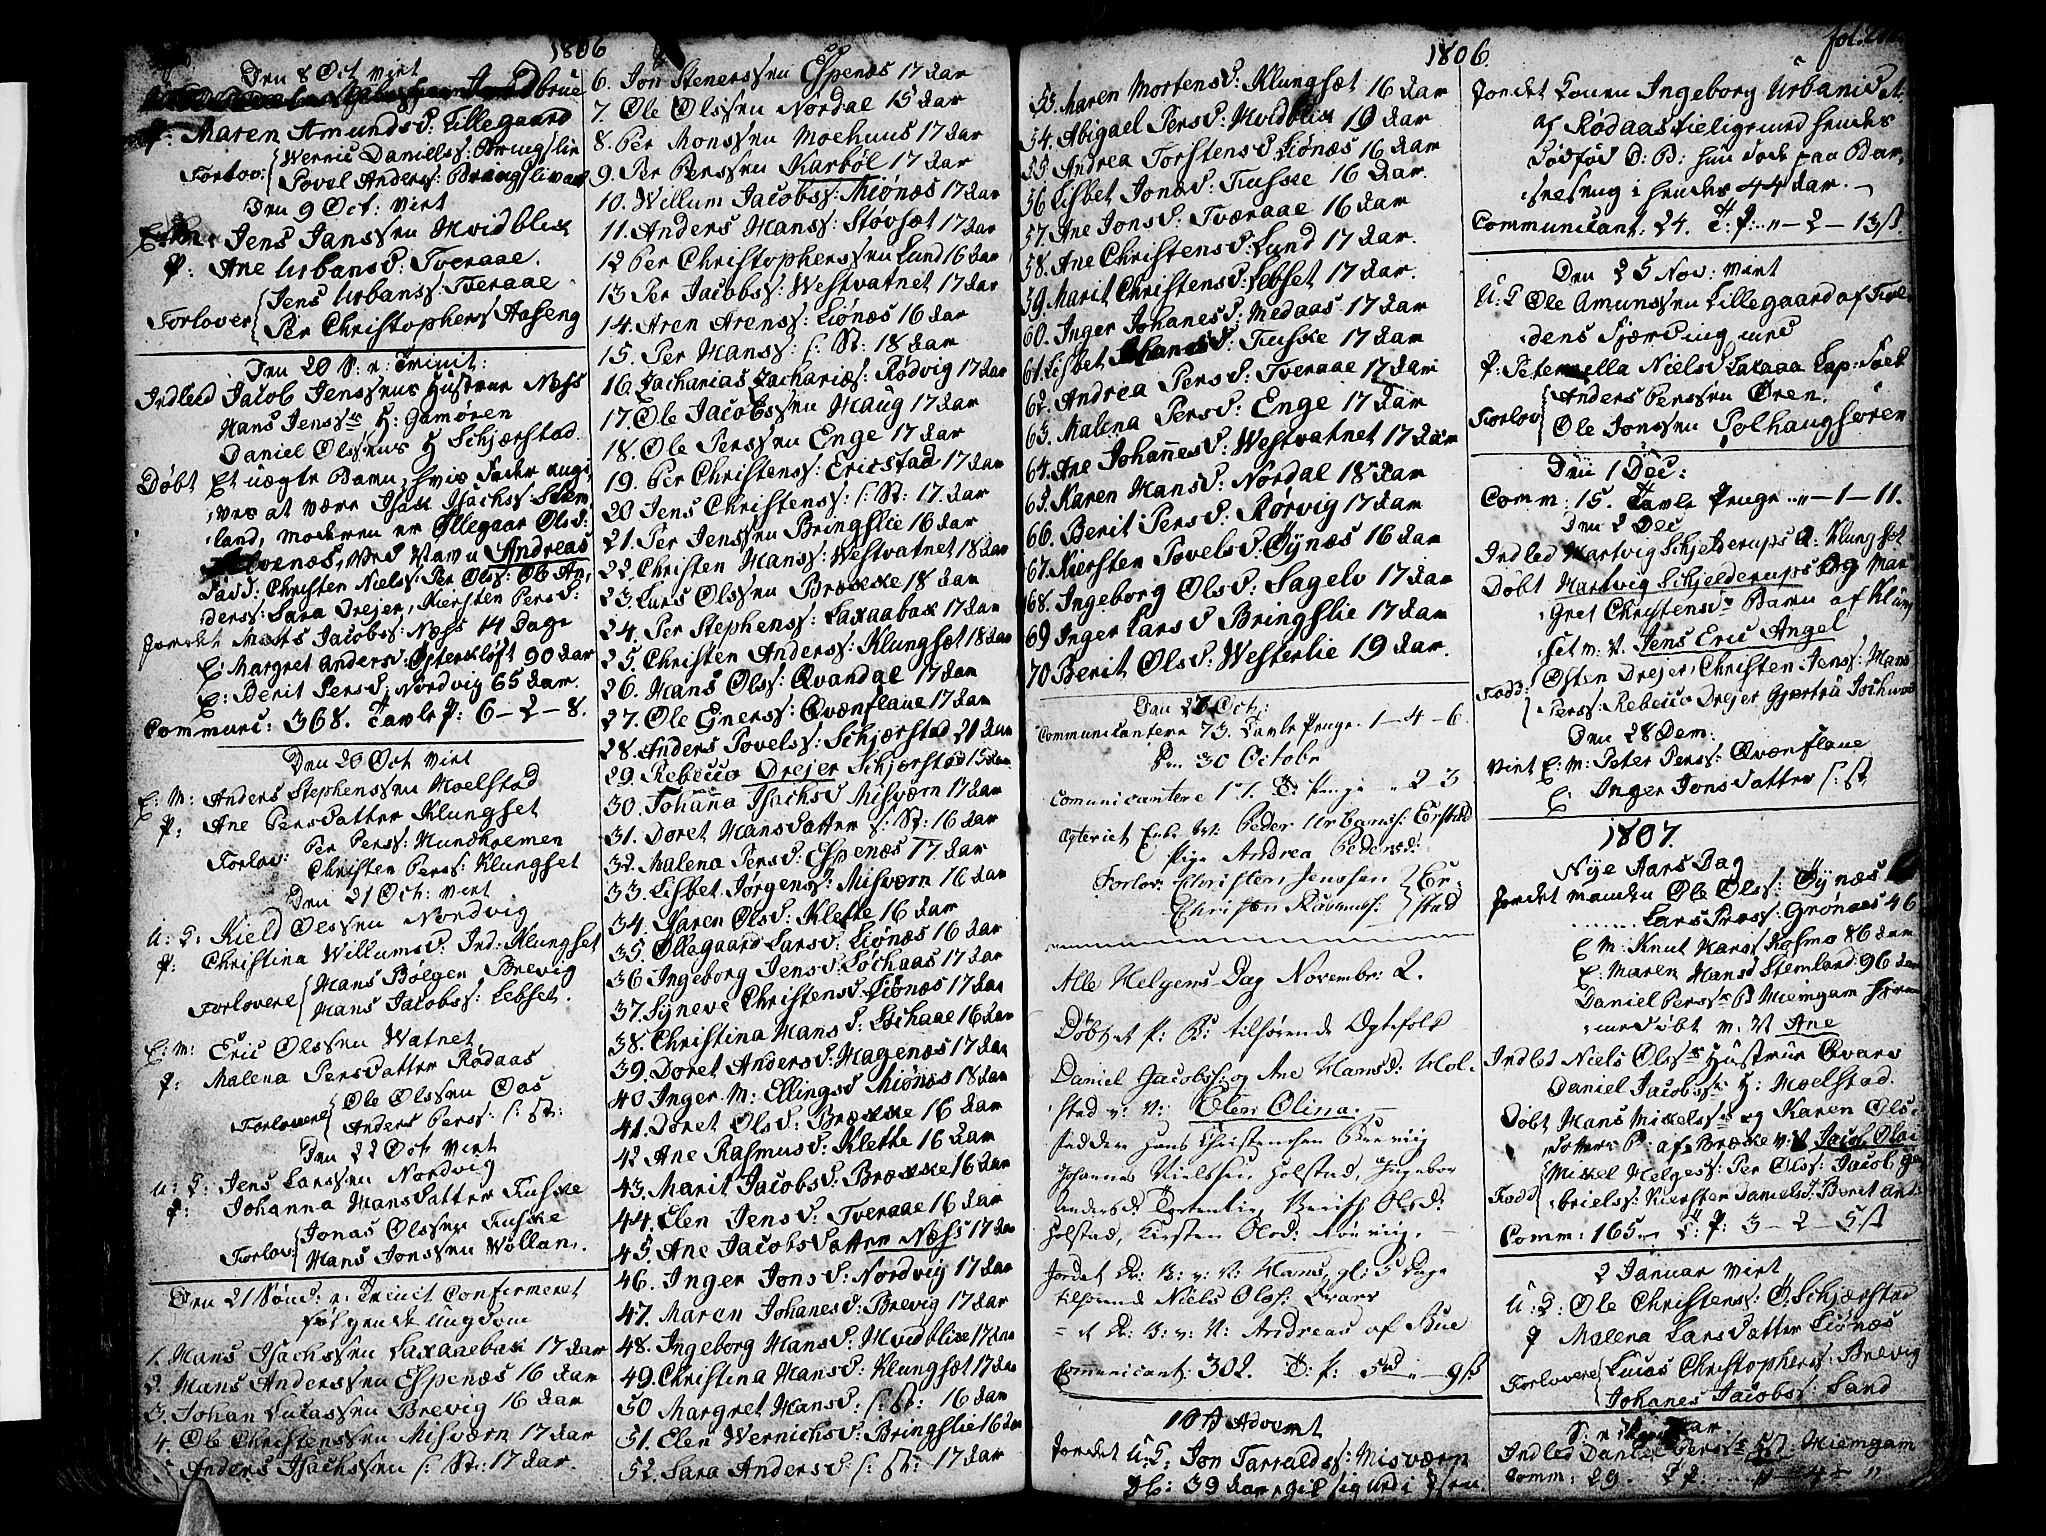 1806
Den 8 Oct viet
brue
P: Maren Amundsd: Lillegaard
Forlov: Wernic Daniells: Bringslie
Povel Anders: Brangslivat
Den 9 Oct: viet
Jens Janssen Hvidblik
P: Ane Urbansd: Tveraae.
Forlover Jens Urbans: Tveraae
Per Christophers: Aaseng
Den 20 S: e: Trinit:
Indled Jacob Jenssens Hustrue Næss
Hans Jenssens H: Gamøren
Daniel Olssens H Schjærstad
Døbt Et uægte Barn, hvis Fader angi-
ves at være Isak Isachs: Stem-
land, moderen er Ollegaar Olsd:
ved Navn Andreas
Fadd: Christen Niels: Per Ols: Ole An-
ders: Sara Drejer, Kiersten Persd:
Jordet Mats Jacobs: Næss 14 Dage
E: Margret Andersd: Østerkløft 90 aar
E: Berit Persd: Nordvig 65 aar.
Communi: 368. Tavle P: 6-2-8.
Den 20 Oct viet
E: M: Anders Stephenssen Moelstad
P: Ane Persdatter Klungset
Forlov: Per Pers: Mundholmen
Christen Pers: Klungset
Den 21 Oct: viet
U: K: Kield Olssen Nordvig
P: Christina Willumsd. Ind: Klungset
Forlovere Hans Bøegen Brevig
Hans Jacobs: Lebset.
E: M: Eric Olssen Watnet
P: Malena Persdatter Rødaas
Forlovere Ole Olssen Oas
Anders Pers: S: St:
Den 22 Oct viet
U: K: Jens Larssen Nordvig
P: Johanna Hansdatter Fuske
Forlov: Jonas Olssen Fuske
Hans Jonssen Wollan.
Den 21 Sønd: e: Trinit Confirmeret
følgende Ungdom
1. Hans Isachssen Laxaaebak 17 aar
2. Hans Anderssen Espenæs 16 aar
3. Johan Lucassen Brevig 16 aar
4. Ole Christenssen Misværn 17 aar
5 Anders Isachssen S: St: 17 aar.
6. Jon Stenerssen Espenæs 17 aar
7. Ole Olssen Nordal 15 aar
8. Per Monssen Moehuus 17 aar
9. Per Perssen Karbøl 17 aar
10. Willum Jacobs: Miønæs 17 aar
11. Anders Hans: Stovsæt 17 aar
12 Per Christopherssen Lund 16 aar
13 Per Jacobs: Westvatnet 17 aar
14. Aren Arens: Liønæs 16 aar
15. Per Hans: S: St: 18 aar
16. Zacharias Zacharies: Rødvig 17 aar
17. Ole Jacobssen Haug 17 aar
18. Ole Perssen Enge 17 aar
19. Per Christens: Ericstad 17 aar
20 Jens Christens: S: St: 17. aar
21. Per Jenssen Bringslie 16 aar
22. Christen Hans: Westvatnet 18 aar
23. Lars Olssen Brække 18 aar
24. Per Stephens: Laxaabak 17 aar
25. Christen Anders: Klungsæt 18 aar
26. Hans Ols: Qvandal 17 aar
27. Ole Eners: Qvænflaae 17 aar
28. Anders Povels: Schjærstad 21 aar
29. Rebecca Drejer Schjærstad 15 aar
30. Johanna Isachsd Misværn 17 aar
31. Doret Hansdatter S: St: 16 aar
32. Malena Persd: Espenæs 17 aar
33. Lisbet Jørgens: Misværn 16 aar
34. Karen Olsd: Klette 16 aar
35. Ollegaard Larsd: Liønæs 16 aar
36 Ingeborg Jensd: Løchaas 17 aar
37. Syneve Christensd: Liønæs 17 aar
38. Christina Hansd: Lschaae 16 aar
39. Doret Andersd: Hagenæs 17 aar
40 Inger M: Ellingsd Miønæs 18 aar
41. Doret Olsd: Brække 16 aar
42 Ane Rasmusd: Klette 16 aar
43. Marit Jacobsd: Brække 16 aar
44. Elen Jensd: Tveraae 16 aar
45. Ane Jacobsdatter Næss 17 aar
46. Inger Jonsd: Nordvig 17 aar
47. Maren Johanesd: Brevig 17 aar
48. Ingeborg Hansd: Hvidblike 17 aar
49. Christina Hansd: Klungsæt 17 aar
50 Margret Hansd: S: St: 16 aar
51. Elen Wernichsd: Bringslie 16 aar
52. Sara Andersd: S: St: 17 aar
1806.
53. Maren Mortensd: Klungsæt 16 aar
54. Abigael Persd: Hvidblik 19 aar
55 Andrea Torstensd Liønæs 16 aar
56 Lisbet Jonsd: Fuske 16 aar.
57. Ane Jonsd: Tværaae 16 aar
58. Ane Christensd: Lund 17 aar.
59. Marit Christensd: Lebset 17 aar.
60. Inger Johanesd: Medaas 17 aar
61. Lisbet Fuske 17 aar
62. Andrea Persd: Tveraae 17 aar
63. Malena Persd: Enge 17 aar
64. Ane Johannesd: Westvatnet 17 aar
65. Karen Hansd: Nordal 18 aar
66. Berit Persd: Rørvig 17 aar
67. Kiersten Povelsd: Øynæs 16 aar
68. Ingeborg Olsd: Sagelv 17 aar
69 Inger Larsd Bringslie 17 aar
70 Berit Olsd: Westerlie 19 aar.
Den 27 Oct:
Communicantere 73. Tavle Penge. 1-4-6
Den 30 Octobr
Comunicantere 17. T: Penge " 2-3
Egteviet Enke M: Peder Urbans: Erstad
Pige Andrea Pedersd:
Forlov: Christen Jenssen
Christen Rasmus: Erstad
Alle Helgens Dag Novembr: 2.
Døbt et P: B: tilhørende Egtefolk
Daniel Jacobs: og Ane Hansd: Hol-
stad v: N: Elen Olina.
Faddere Hans Christensen Breviig
Johannes Nielsen Holstad, Ingebor
Andersd: Berith Olsd:
Holstad, Kirsten Olsd:
Jordet Dr: B: v: N: Hans, gl: 5 Dage
tilhørende Niels Ols: Qvarv
et Dr: B: v: N: Andreas af Bue
Communicant: 302. T: P: 5rd " 9s
1ste Advent
Jordet U: K: Jon Tarralds: Misværn
39 aar, gik sig ud i
fol:
Jordet Konen Ingeborg Urbanisdt:
af Rødaas tillige med hendes
dødfød D: B: hun døde paa Bar-
selseng i hendes 44 aar.
Communicant: 24. T: P: "-2-13s
Den 25 Nov: viet
U: K Ole Amunssen Lillegaard af
dens Fjærding med
P: Peternella Nielsd Laxaaa Lap: Folk
Forlov: Anders Perssen Øren.
Ole Jonssen Solhaugsøren
Den 1 Dec:
Comm: 15. Tavle Penge "-1-11.
Den 2 Dec
Indled Hartvig Schjelderups K: Klungset
Døbt Hartvig Schjelderups og Mar-
gret Christensdr Barn af Klung-
set m: N. Jens Eric Angel
Fadd: Østen Drejer, Christen Jens: Hans
Pers: Rebecca Drejer Gjertru Isch
Den 28 Dem:
Viet E: M: Peter Pers: Qvænflaae
E: Inger Jonsdatter S: St
1807.
Nye Aars Dag
Jordet manden Ole Ols: Øynæs
Lars Grønaas 46
E M: Knut Hans: Kosmo 86 aar
E. Maren Hansd Stemland 96 aar
Daniel Perssens B Hiemgam
medøbt m: N Ane
Indled Niels Olssens Hustrue Qvarv
Daniel Jacobssens H: Moelstad.
Døbt Hans Mikkelssen og Karen Ols-
datters B: af Brække v: N Jacob Olai
Fadd: Mikkel Helges: Per Ols: Jacob Ga-
briels: Kiersten Danielsd: Beret And
Comm: 165. T: P: 3-2-5s
2 Januar viet
U: K: Ole Christens: Ø: Schjærstad
P Malena Larsdatter Liønæs
Forlovere Lucas Christophers: Brevig
Johanes Jacobs: Sand
S: e: Nye Aar.
Indled Daniel Perss: Hiemgam
Comm: 29. T P: "-4-"